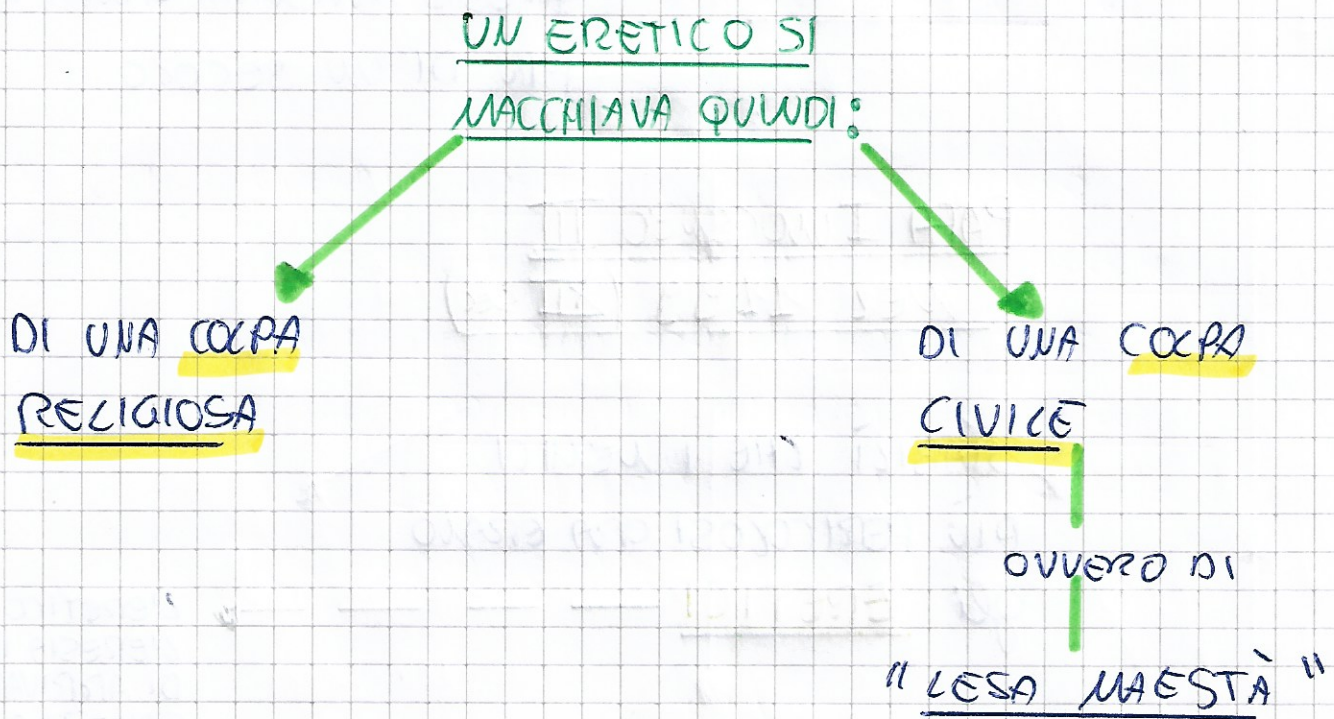 UN ERETICO SI
MACCHIAVA QUINDI:
DI UNA COLPA
RELIGIOSA
DI UNA COLPA
CIVILE
OVVERO DI
"LESA MAESTÀ"